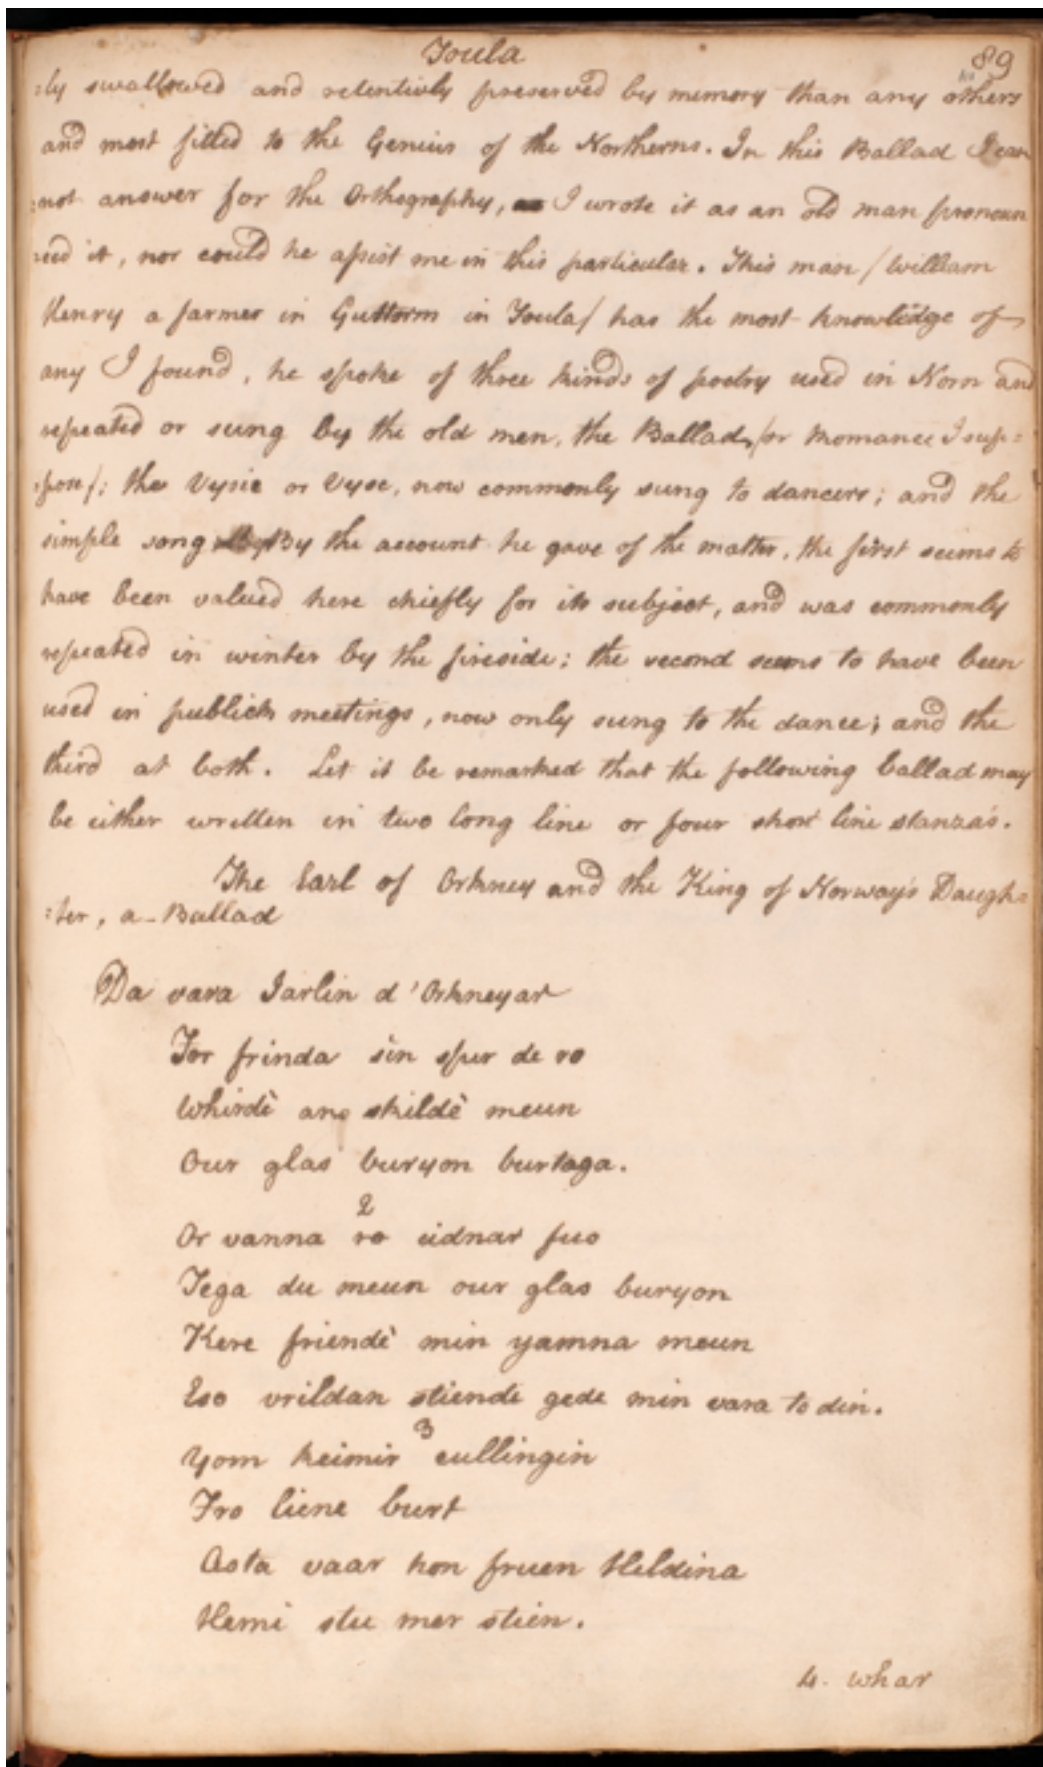 Foula
89
:ly swallowed and retentivly preserved by memory than any others
and most fitted to the Genius of the Northerns. In this Ballad I can
:not answer for the Orthography, I wrote it as an old man pronoun
ced it, nor could he assist me in this particular. This man / William
Henry a farmer in Guttorm in Foula / has the most knowledge of
any I found, he spoke of three kinds of poetry used in Norn and
repeated or sung by the old men, the Ballad, / or Romance I sup=
:pose /: the Vysie or Vyse, now commonly sung to dancers; and the
simple song By the account he gave of the matter, the first seems to
have been valued here chiefly for its subject, and was commonly
repeated in winter by the fireside; the second seems to have been
used in publick meetings, now only sung to the dance; and the
third at both. Let it be remarked that the following ballad may
be either written in two long line or four short line stanza's.
The Earl of Orkney and the King of Norway's Daugh=
:ter, a Ballad
Da vara Iarlin d'Orkneyar
For frinda sin spur de ro
Whirdè ane skildè meun
Our glas buryon burtaga.
2
Or vanna ro eidnar fuo
Tega du meun our glas buryon
Kere friendè min yamna meun
Eso vrildan stiende gede min vara to din.
3
Yom keimir cullingin
Fro liene burt
Asta vaar hon fruen Hildina
Hemi stu mer stien.
4. Whar